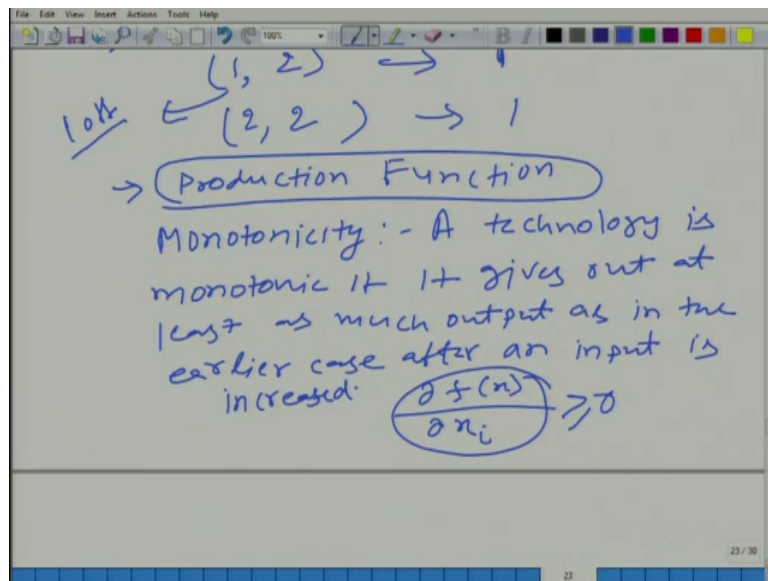 File Edit View Insert Actions Tools Help
100%
B I
(1, 2) →
(2, 2) → 1
→ Production Function
Monotonicity :- A technology is
monotonic if it gives out at
least as much output as in the
earlier case after an input is
increased.
∂f(x)
∂x_i
≥ 0
23 / 30
23